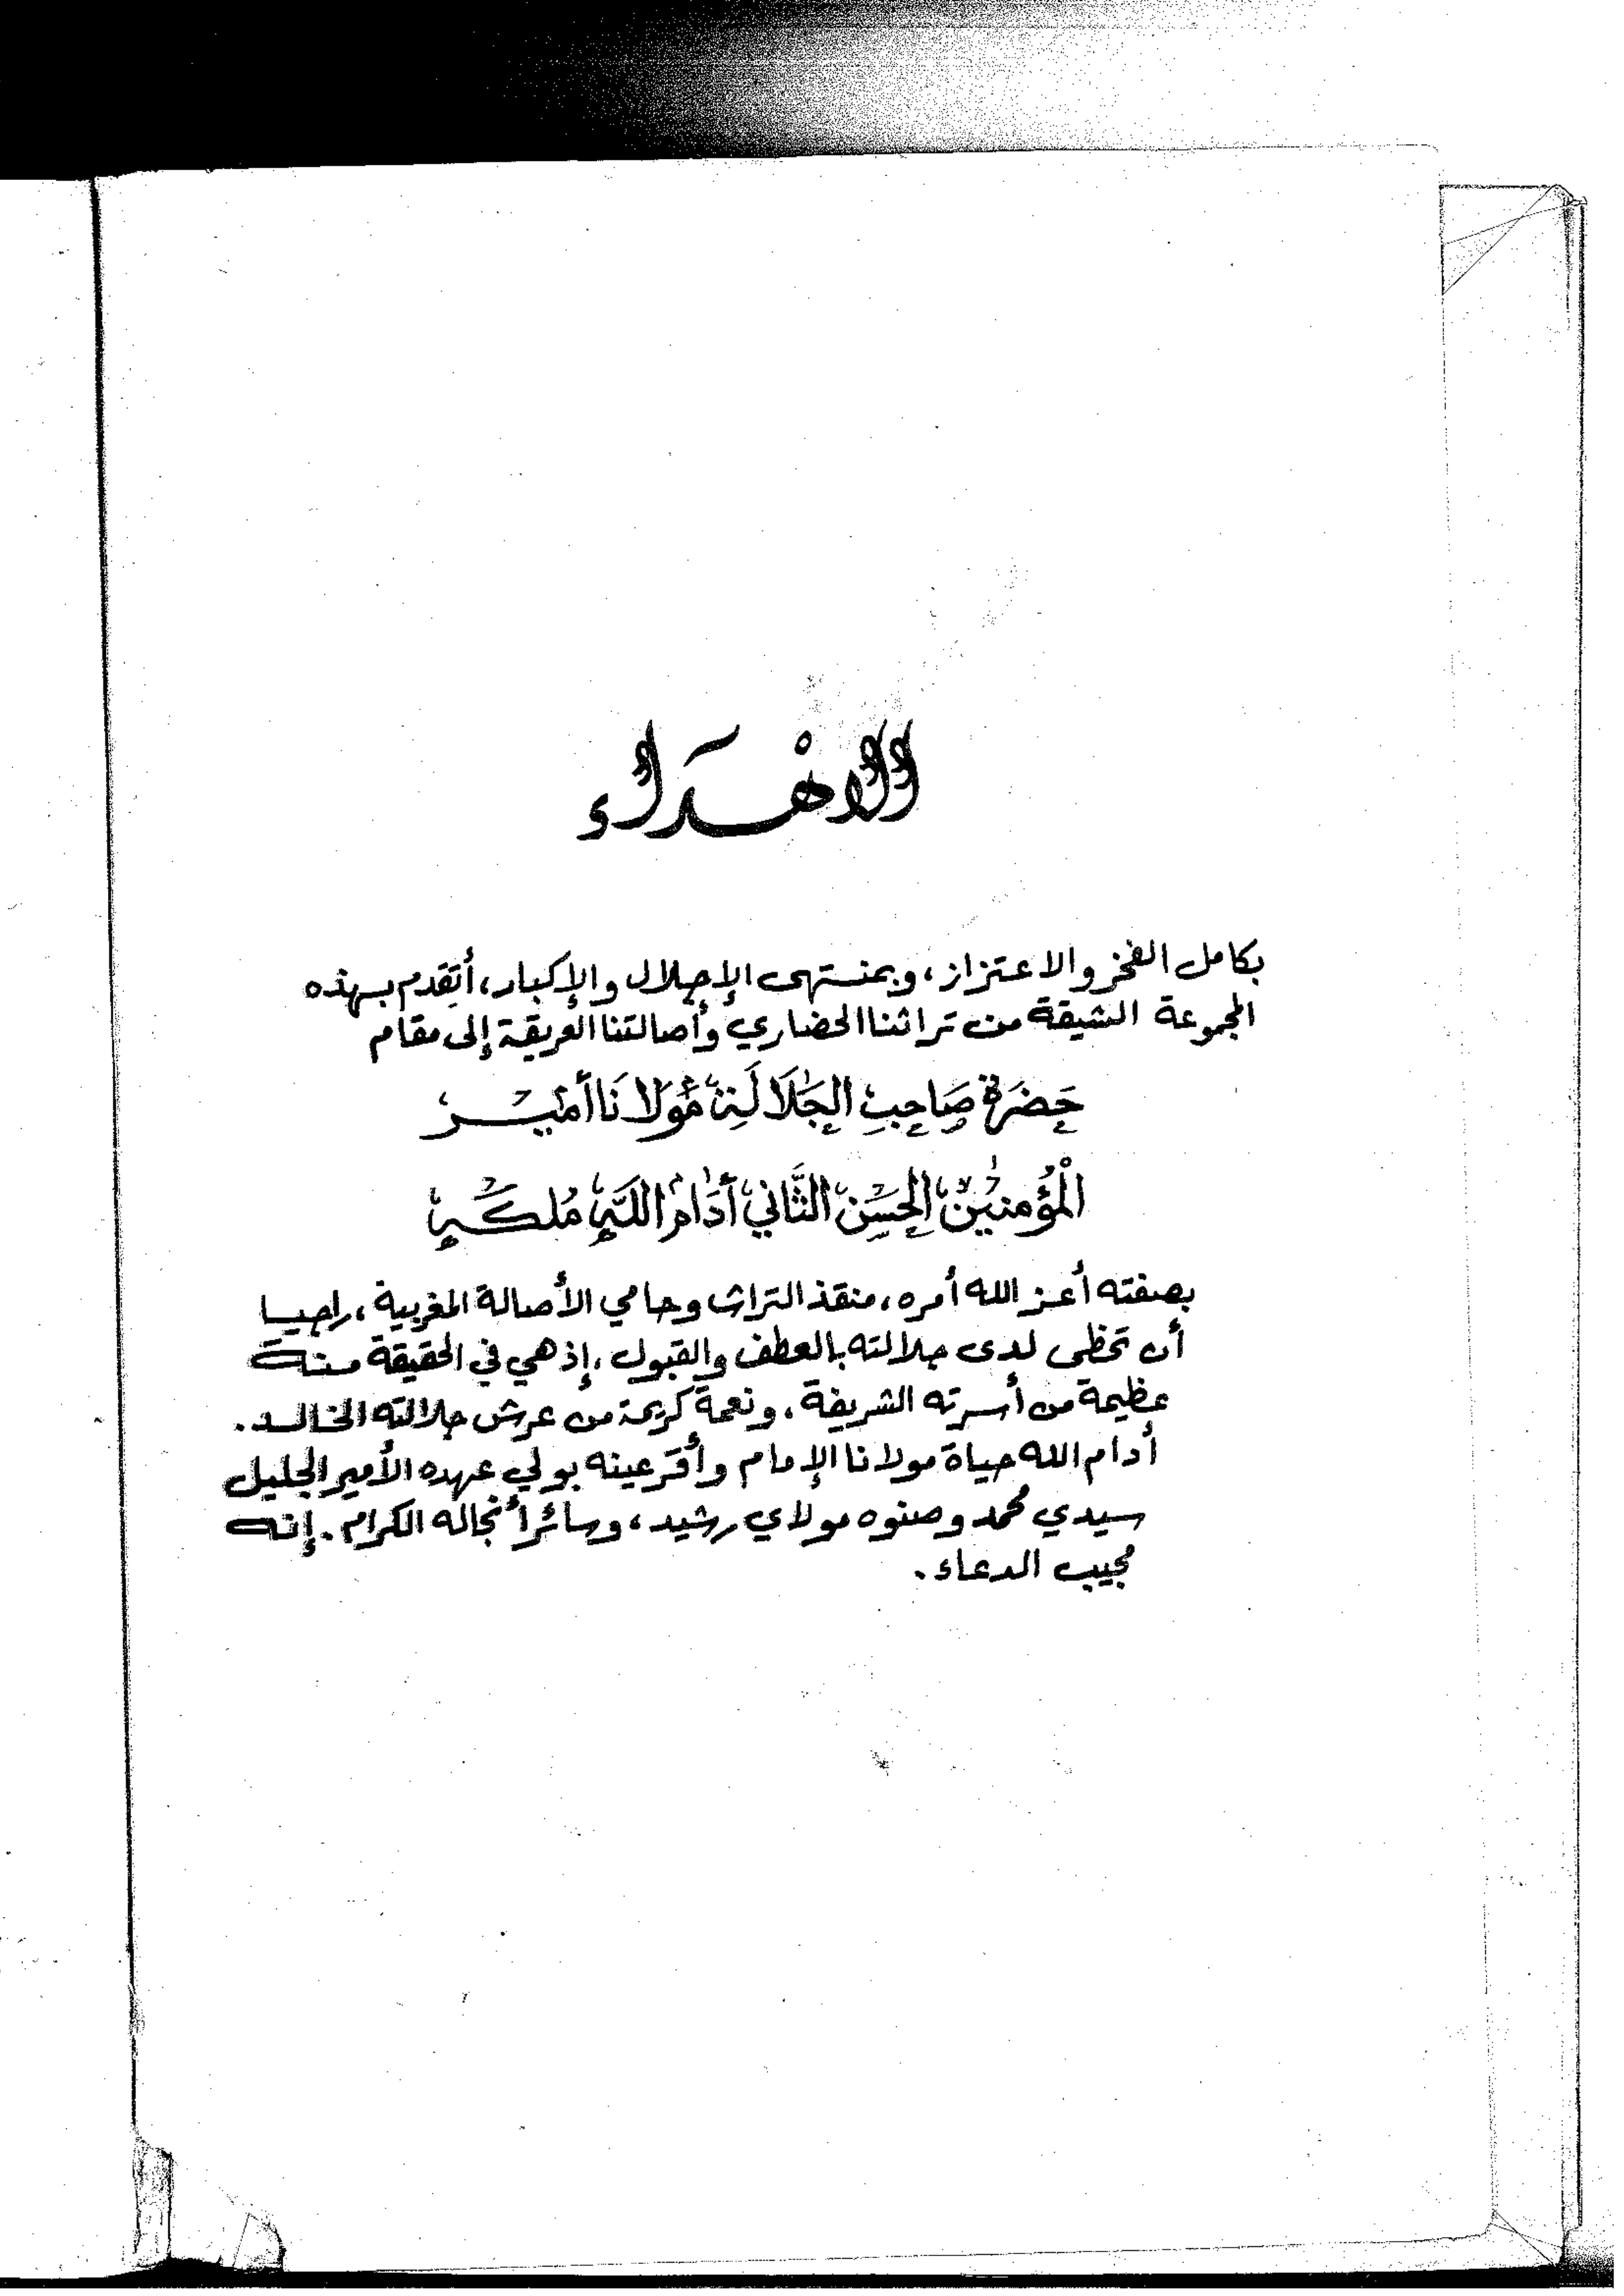 الاهْدَاء
بكامل الفخر والاعتزاز، وبمنتهى الإجلال والإكبار، أتقدم بهذه
المجموعة الشيقة من تراثنا الحضاري وأصالتنا العريقة إلى مقام
حَضرَة صَاحِب الجَلَالَة مَوْلَانَا أَمير
الْمُؤمنين الحَسَن الثَّاني أدَام اللَّه مُلكَه
بصفته أعز الله أمره، منقذ التراث وحامي الأصالة المغربية، راجيا
أن تحظى لدى جلالته بالعطف والقبول، إذ هي في الحقيقة منة
عظيمة من أسرته الشريفة، ونعمة كريمة من عرش جلالته الخالد.
أدام الله حياة مولانا الإمام وأقر عينه بولي عهده الأمير الجليل
سيدي محمد وصنوه مولاي رشيد، وسائر أنجاله الكرام. إنه
مجيب الدعاء.